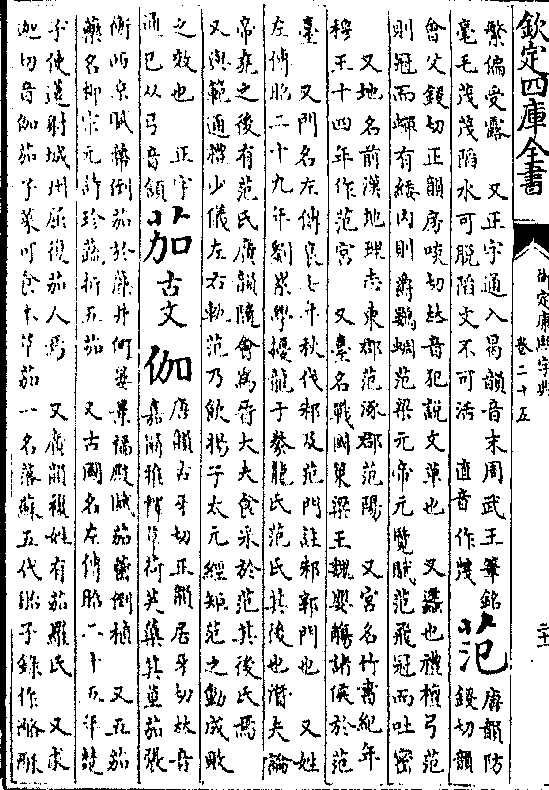 欽定四庫全書
御定康熙字典
卷二十五
繁偏受露 又正字通入曷韻音末周武王筆銘
毫毛茂茂陷水可脫陷文不可活 適音作茂 范 唐韻防
鋄切韻
會父鋄切正韻房啖切𠀤音犯說文草也 又蠭也禮檀弓范
則冠而蟬有緌內則爵鷃蜩范梁元帝元覽賦范飛冠而吐蜜
又地名前漢地理志東郡范涿郡范陽 又宮名竹書紀年
穆王十四年作范宮 又臺名戰國策梁王魏嬰觴諸侯於范
臺 又門名左傳哀七年秋伐邾及范門註邾郭門也 又姓
左傳昭二十九年劉累學擾龍于豢龍氏范氏其後也潛夫論
帝堯之後有范氏廣韻隨會為晉大夫食采於范其後氏焉
又與範通禮少儀左右軌范乃飲揚子太元經矩范之動成敗
之效也 正字
通㔾从弓音頷 茄 古文 伽 唐韻古牙切正韻居牙切𠀤音
嘉爾雅釋草荷芙蕖其莖茄張
衡西京賦蔕倒茄於藻井何晏景福殿賦茄蔤倒植 又五茄
藥名柳宗元詩珍蔬折五茄 又古國名左傳昭二十五年楚
子使薳射城州屈復茄人焉 又廣韻複姓有茄羅氏 又求
迦切音伽茄子菜可食本草茄一名落蘇五代貽子錄作酪酥